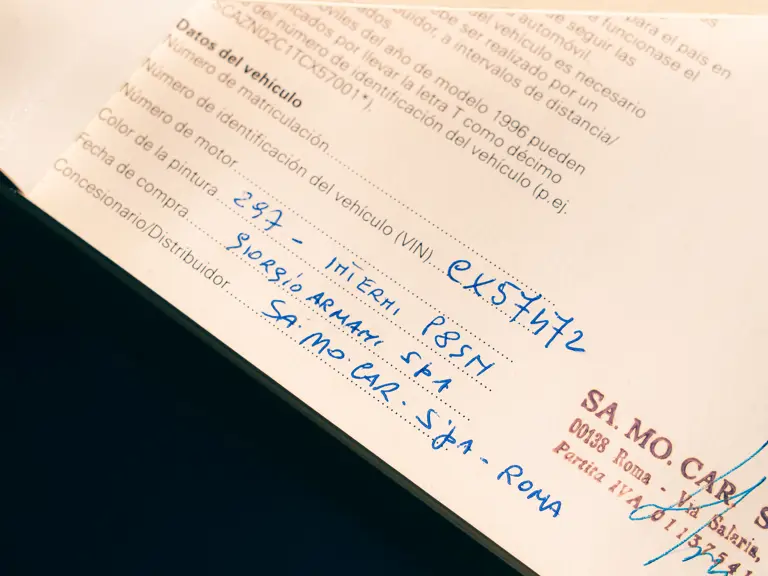 para el país en
funcionase el
seguir las
automóvil.
del vehículo es necesario
ser realizado por un
distribuidor, a intervalos de distancia/
móviles del año de modelo 1996 pueden
identificados por llevar la letra T como décimo
del número de identificación del vehículo (p.ej.
SCAZN02C1TCX57001*).
Datos del vehículo
Número de matriculación
Número de identificación del vehículo (VIN) CX57472
Número de motor
Color de la pintura 297 - INTERNI PBSM
Fecha de compra GIORGIO ARMANI SPA
Concesionario/Distribuidor SA. MO. CAR. S.p.A - ROMA
SA. MO. CAR. S
00138 Roma - Via Salaria,
Partita IVA 01137541